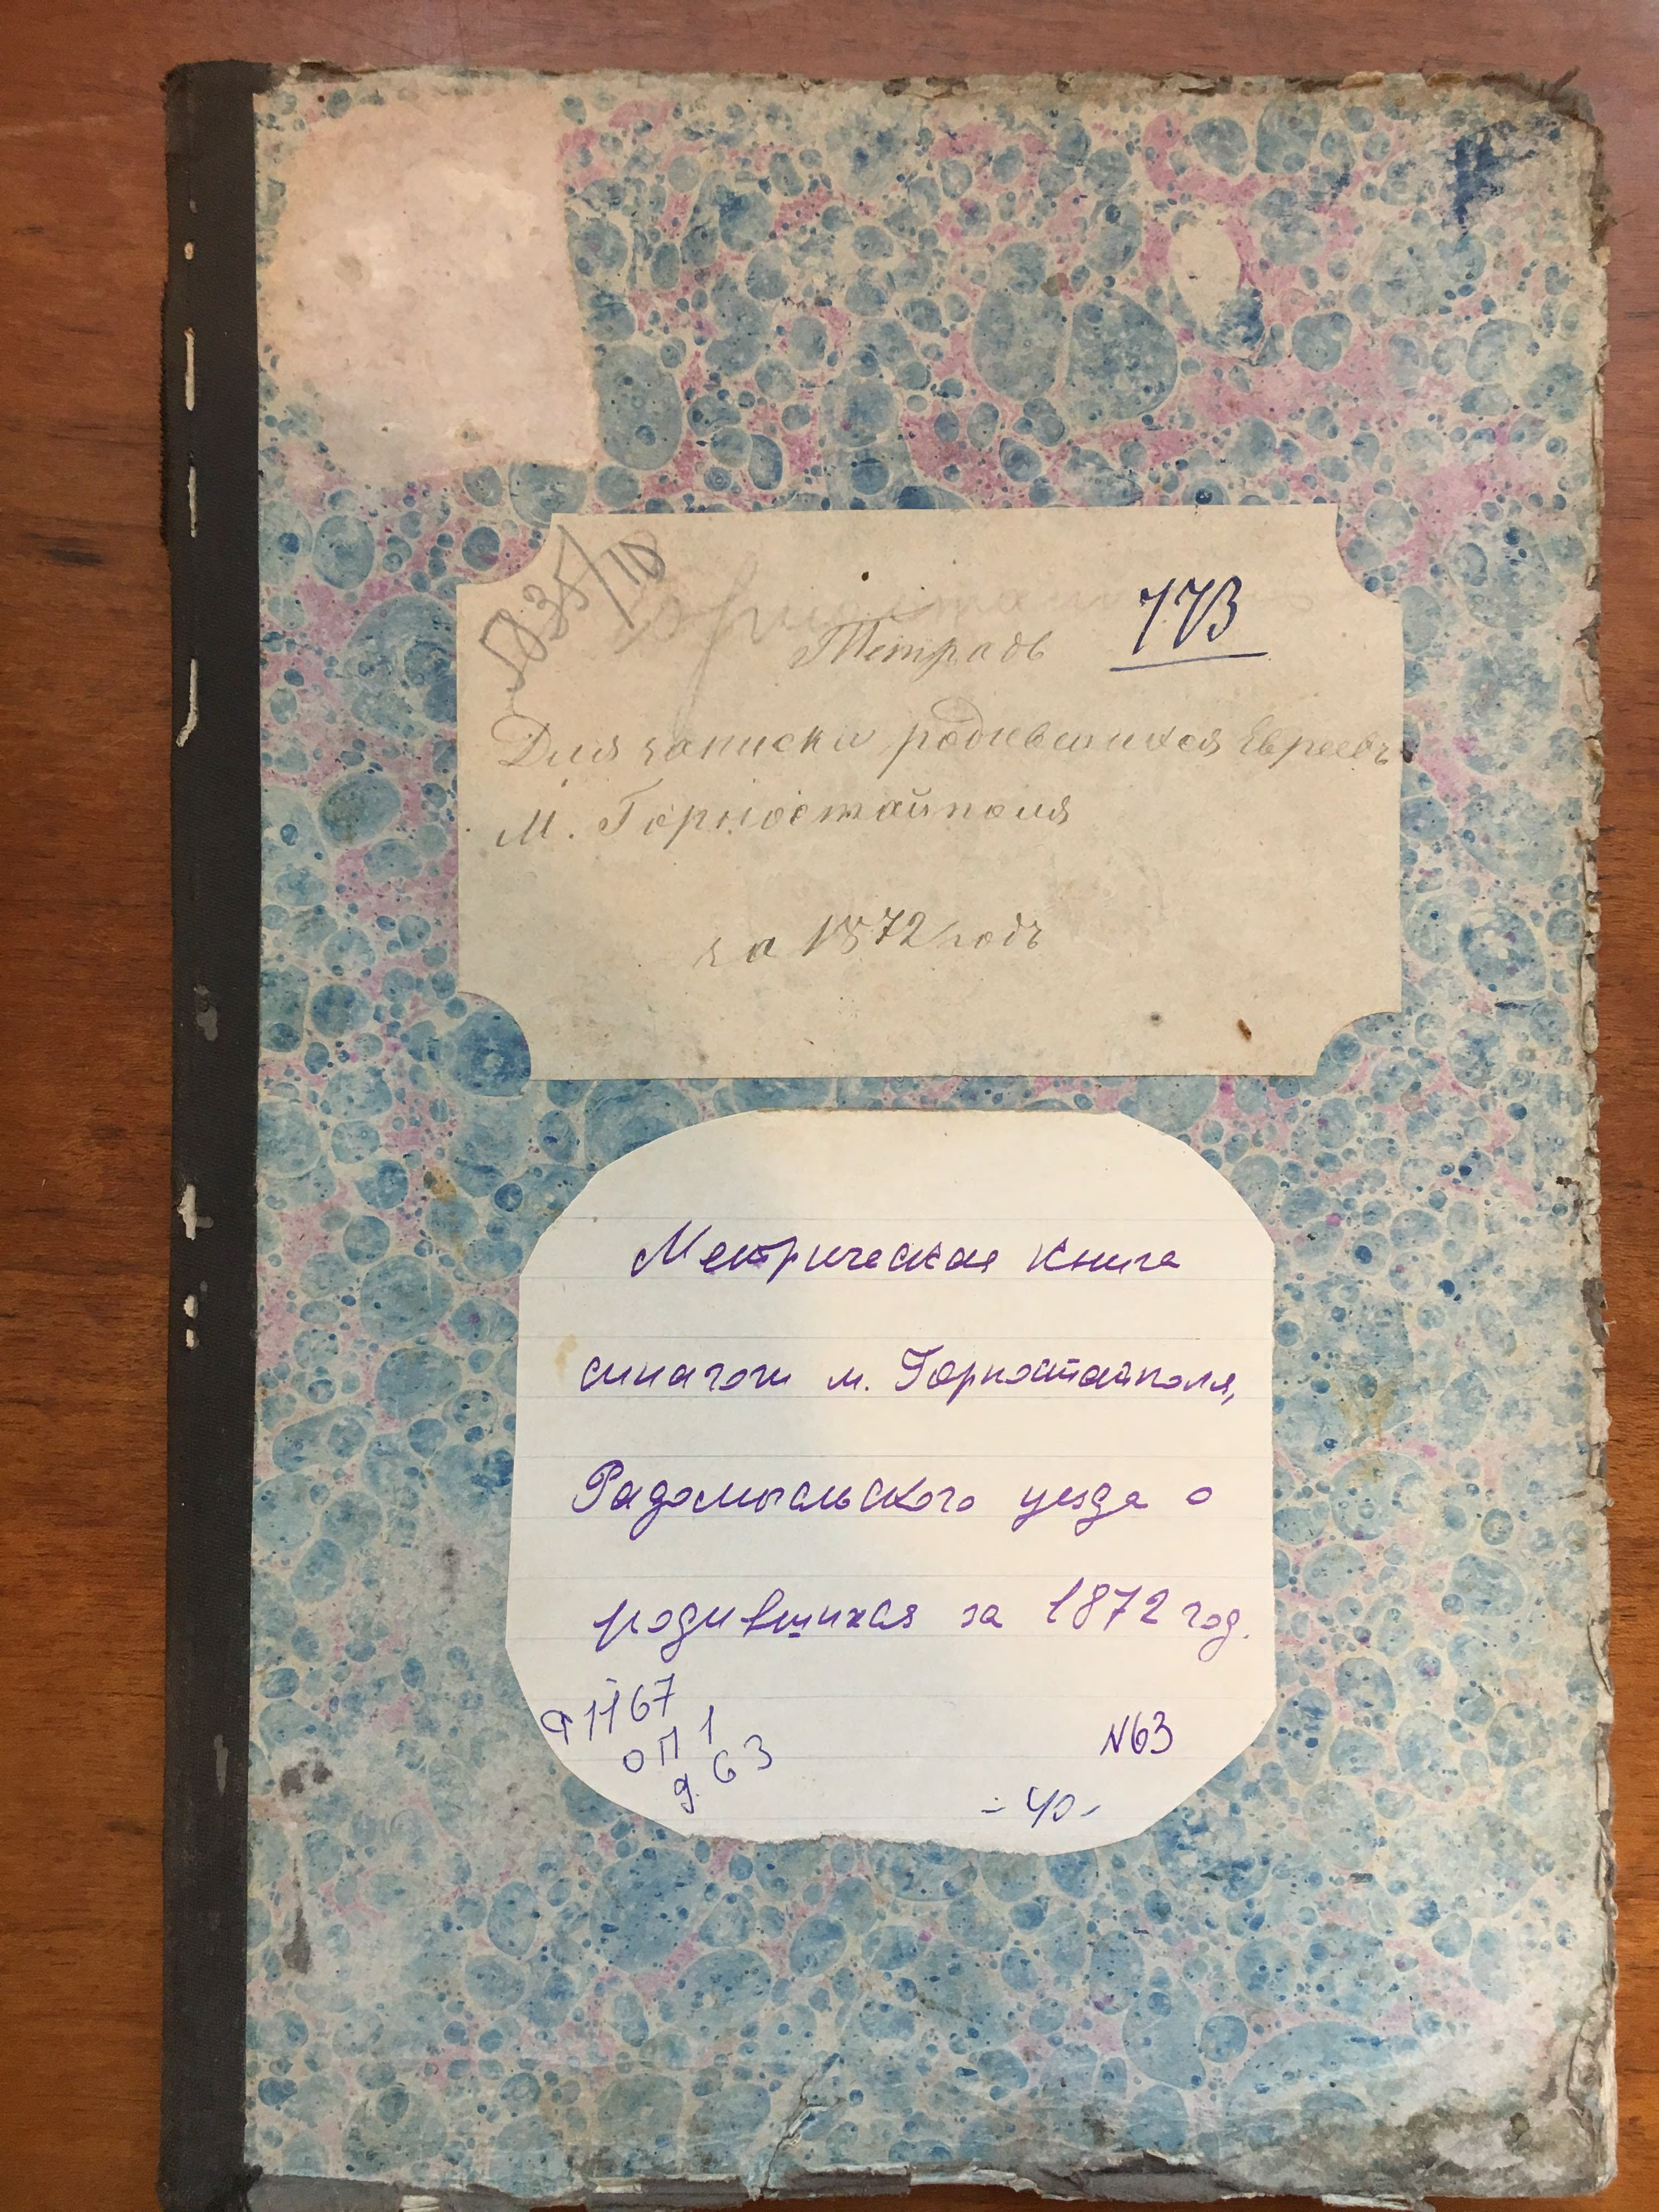 5035/10
173
Тетрадь
Для записки родившихся Евреевъ
М. Горностайполя
за 1872 годъ
Метрическая книга
синагоги м. Горностайполя,
Радомысльского уезда о
родившихся за 1872 год.
Ф 1167
оп 1
д. 63
N63
- 40 -